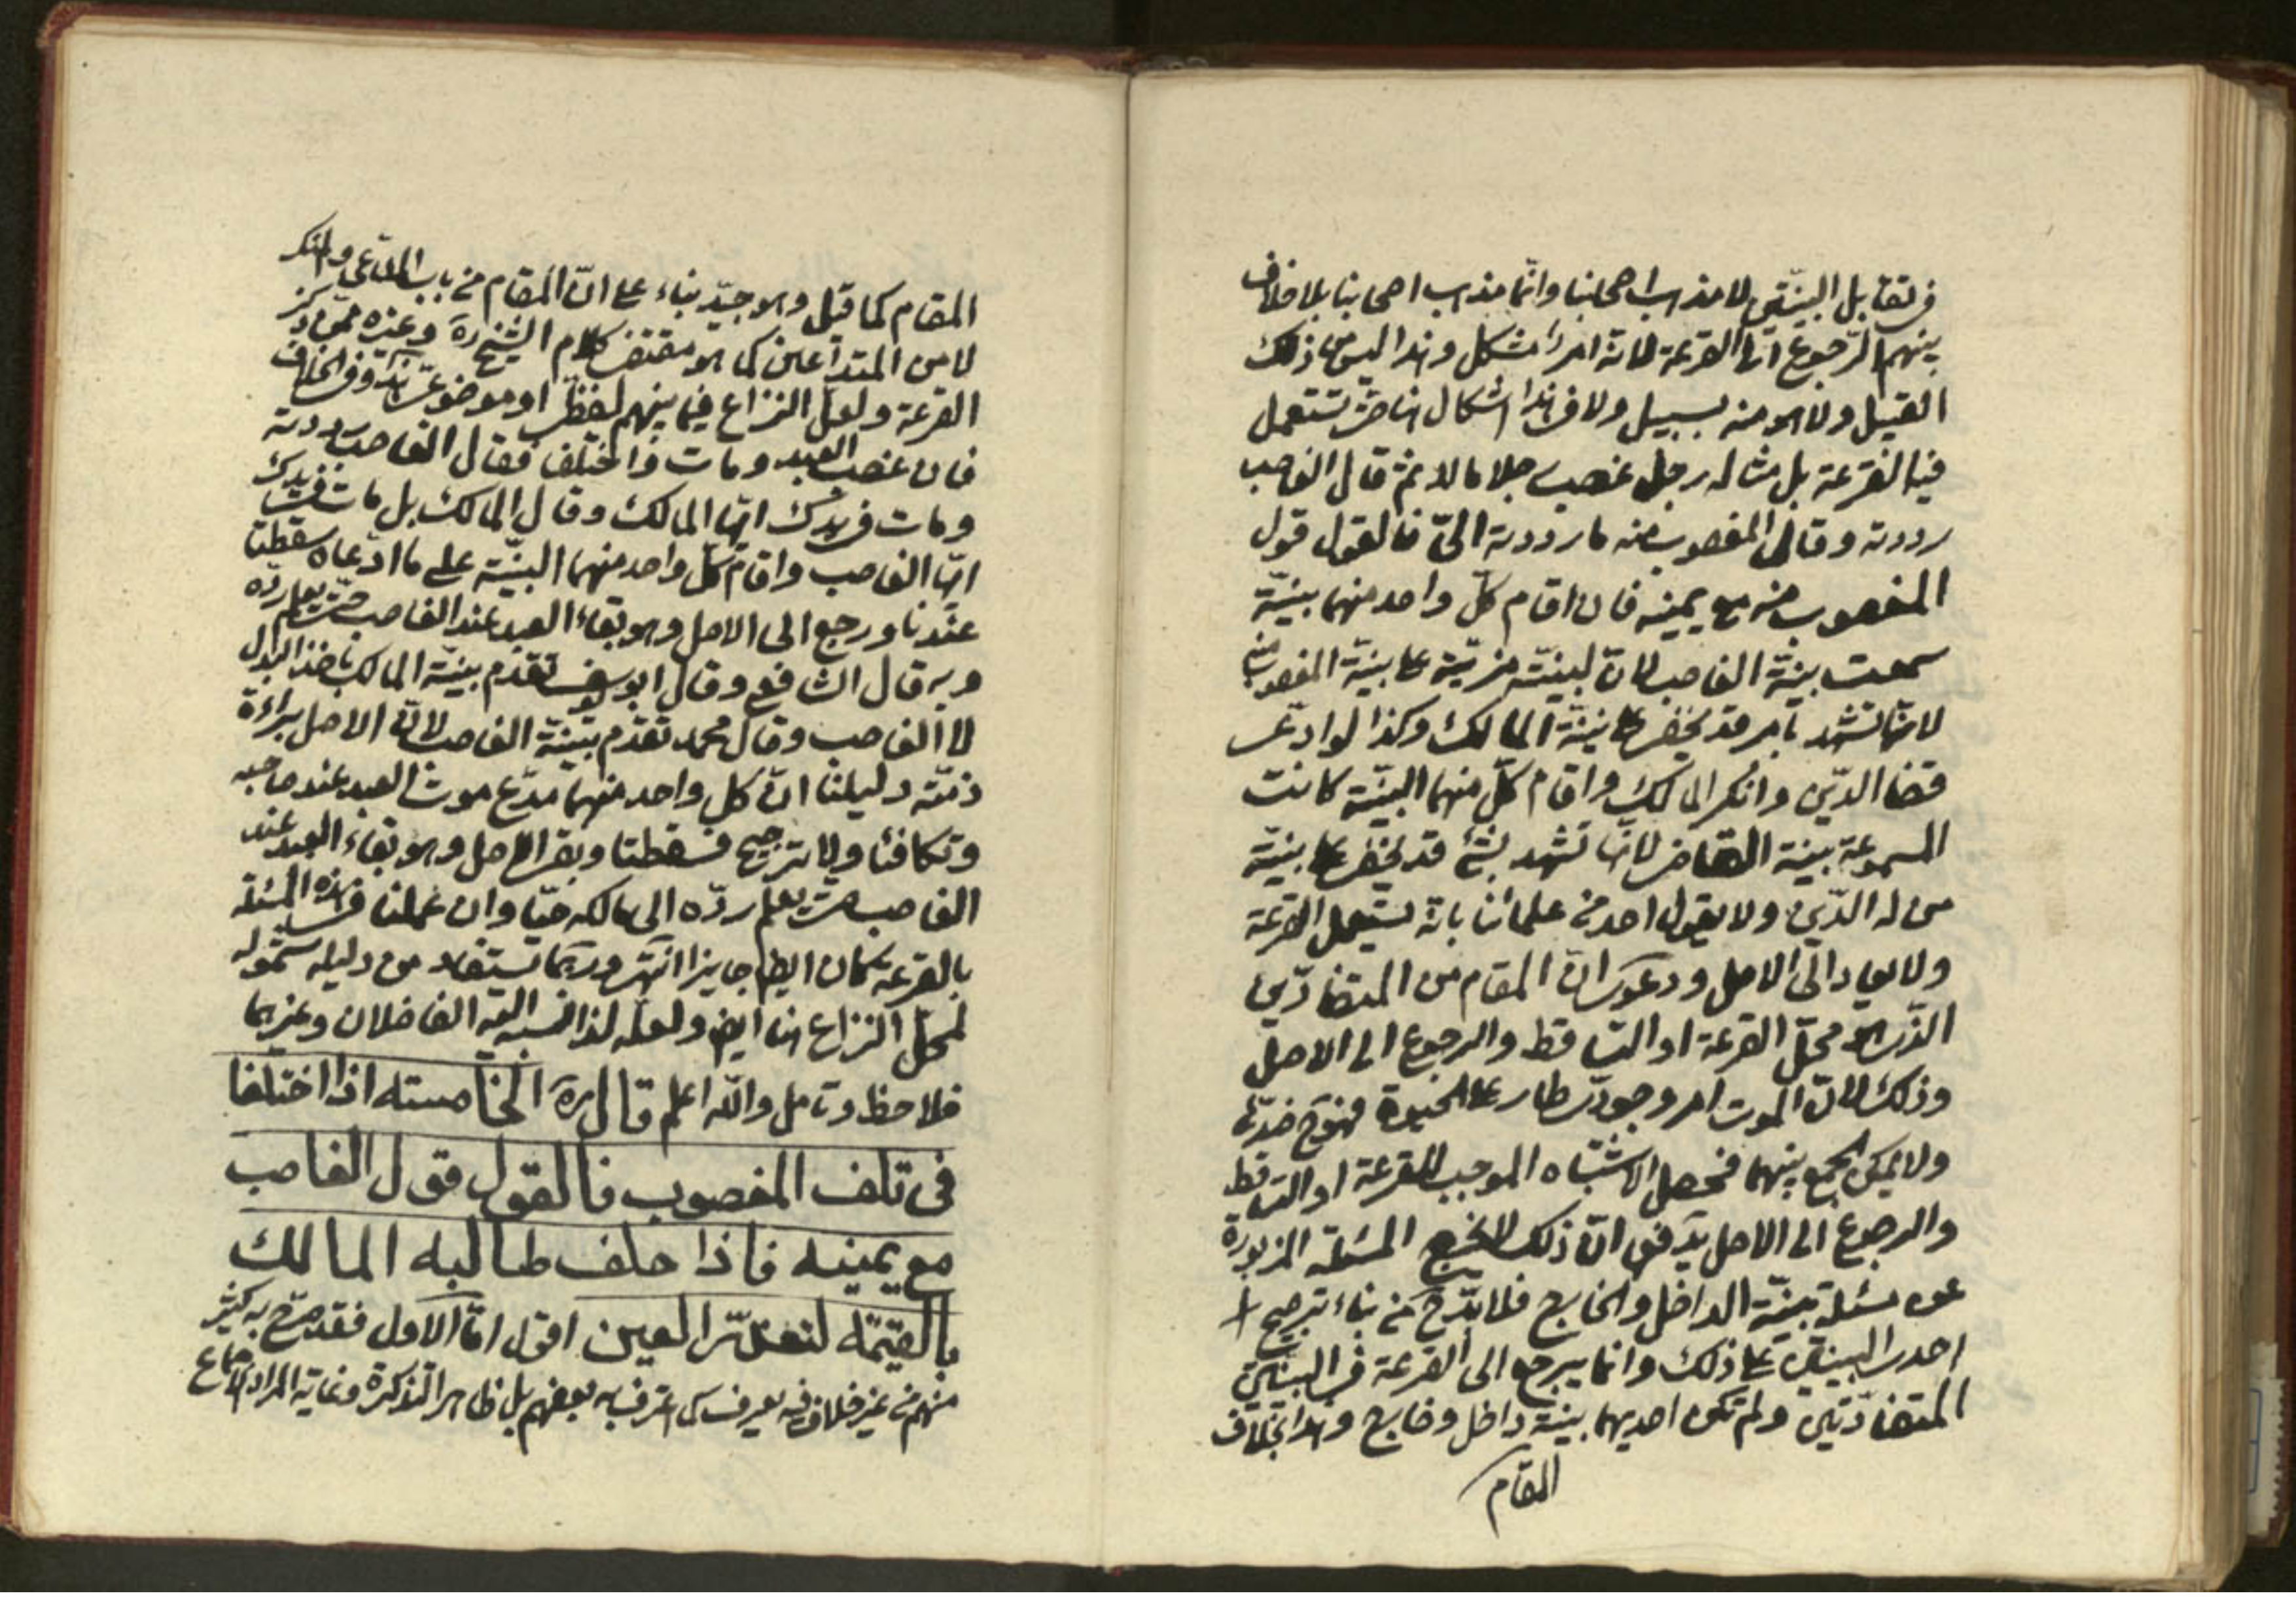 في تقابل البينتين لا مذهب اصحابنا وانما مذهب اصحابنا بلا خلاف
بينهم الرجوع الى القرعة لانه امر مشكل وهذا ليس من ذلك
القبيل ولا هو منه بسبيل ولا في هذا اشكال هنا حتى تستعمل
فيه القرعة بل مثاله رجل غصب رجلا مالا ثم قال الغاصب
رددته وقال المغصوب منه ما رددته الىّ فالقول قول
المغصوب منه مع يمينه فان اقام كلّ واحد منهما بينة
سمعت بينة الغاصب لانّ لبينته مزيّة على بينة المغصوب منه
لانها تشهد بامر قد يخفى على بينة المالك وكذا لو ادّعى
قضا الدّين وانكر المالك واقام كلّ منهما البينة كانت
المسموعة بينة القاضي لانها تشهد بشئ قد يخفى على بينة
من له الدّين ولا يقول احد من علمائنا بانه يستعمل القرعة
ولا يعاد الى الاصل ودعوى انّ المقام من المتضادّين
الذى هو محلّ القرعة او التساقط والرجوع الى الاصل
وذلك لانّ الموت امر وجودى طار على الحيوة فهو ضدّها
ولا يمكن الجمع بينهما فحصل الاشتباه الموجب للقرعة او التساقط
والرجوع الى الاصل يدفع انّ ذلك لا يخرج المسئلة المزبورة
عن مسئلة بينة الداخل والخارج فلا بدّ من بناء ترجيح
احدى البينتين على ذلك وانما يرجع الى القرعة في البينتين
المتضادّتين ولم تكن احديهما بينة داخل وخارج وهذا بخلاف
المقام
المقام كما قيل وهو جيّد بناء على انّ المقام من باب المدّعى والمنكر
لا من المتداعين كما هو مقتضى كلام الشيخ ره وغيره ممّن ذكر
القرعة ولعلّ النزاع فيما بينهم لفظى او موضوعى وفى الخلاف
فان غصب العبد ومات واختلف فقال الغاصب رددته
ومات فى يدك ايها المالك وقال المالك بل مات فى يدك
ايها الغاصب واقام كلّ واحد منهما البينة على ما ادّعاه سقطتا
عندنا ورجع الى الاصل وهو بقاء العبد عند الغاصب حتى يعلم ردّه
وبه قال الشافعى وقال ابو يوسف تقدّم بينة المالك ياخذ البدل
لا الغاصب وقال محمد تقدّم بينة الغاصب لانّ الاصل براءة
ذمّته دليلنا انّ كل واحد منهما مدّع موت العبد عند صاحبه
وتكافئا ولا ترجيح فسقطتا وبقى الاصل وهو بقاء العبد عند
الغاصب حتى يعلم ردّه الى مالكه حيّا وان عملنا فى هذه المسئلة
بالقرعة كان ايضا جايزا انتهى وربما يستفاد من دليله شموله
لمحلّ النزاع هنا ايض ولعلّه لذا نسبه اليه الفاضلان وغيرهما
فلاحظ وتامل والله اعلم قال ره الخامسه اذا اختلفا
فى تلف المغصوب فالقول قول الغاصب
مع يمينه فاذا حلف طالبه المالك
بالقيمة لتعذّر العين اقول امّا الاول فقد صرّح به كثير
منهم من غير خلاف فيه يعرف كما اعترف به بعضهم بل ظاهر التذكرة وغاية المراد الاجماع